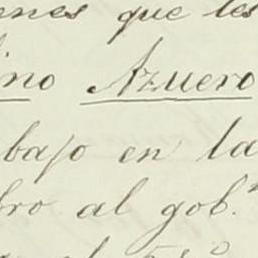 nes que les
ino Azuero
bajo en la
bro al gob.